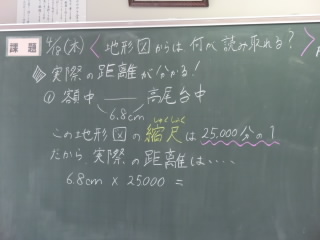 課題 4/18(木) <地形図からは何が読み取れる?>
◎実際の距離が分かる!
① 額中 —— 高尾台中
6.8cm
しゅくしゃく
この地形図の縮尺は25.000分の1
だから実際の距離は・・・・
6.8cm × 25000 =